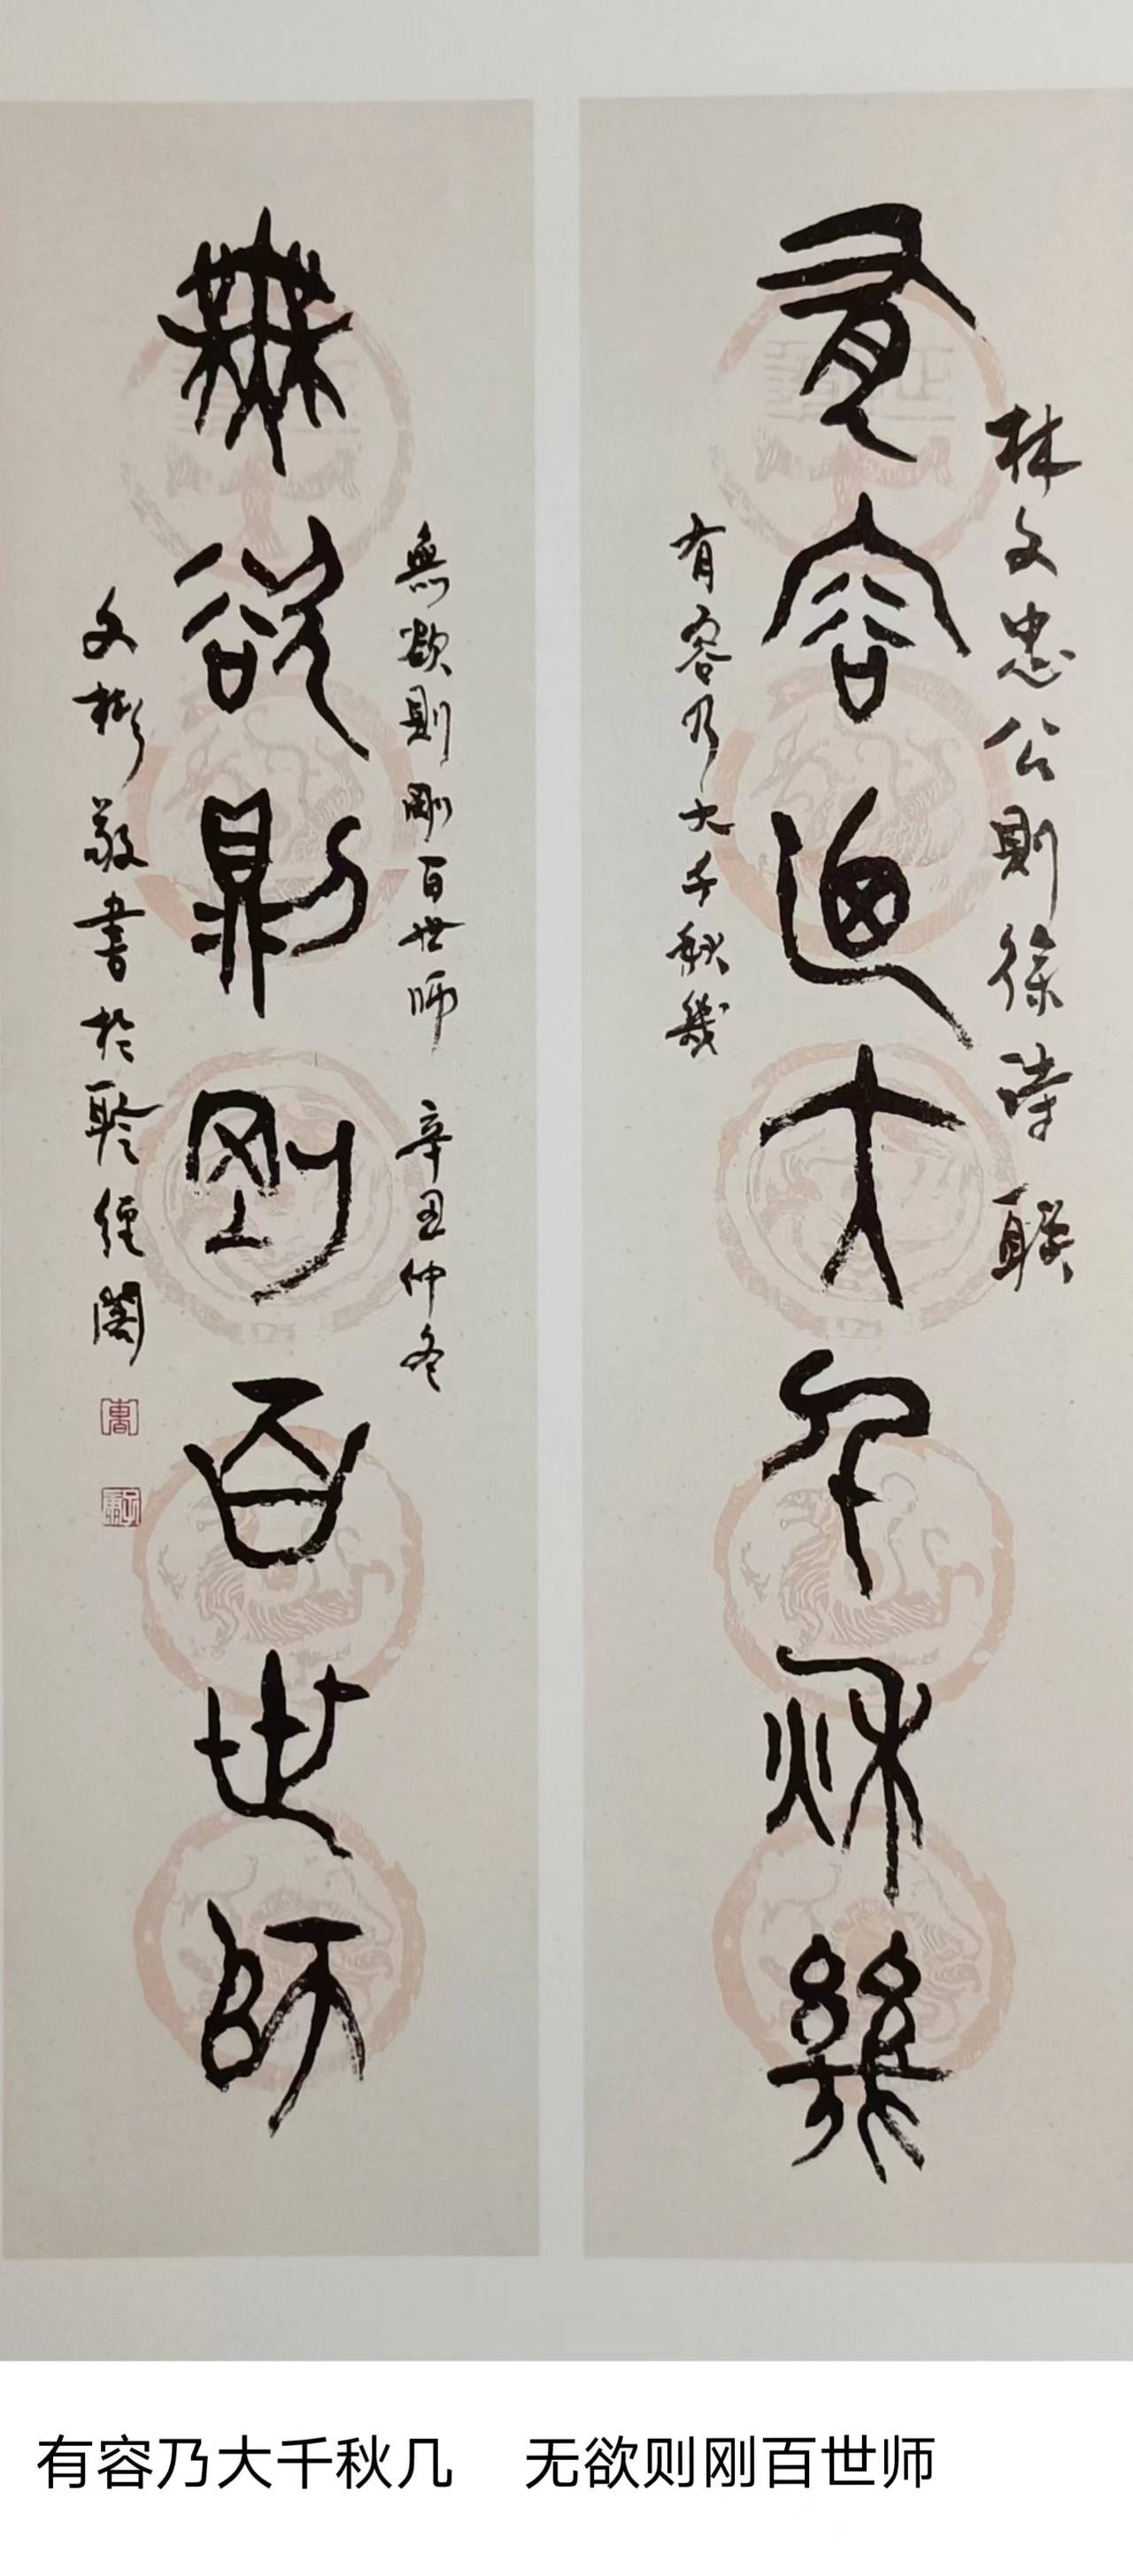 林文忠公則徐詩聯
有容迺大千秋幾
有容乃大千秋幾
無欲則剛百世師 辛丑仲冬
無欲則剛百世師
文彬敬書於聆經閣
有容乃大千秋几 无欲则刚百世师